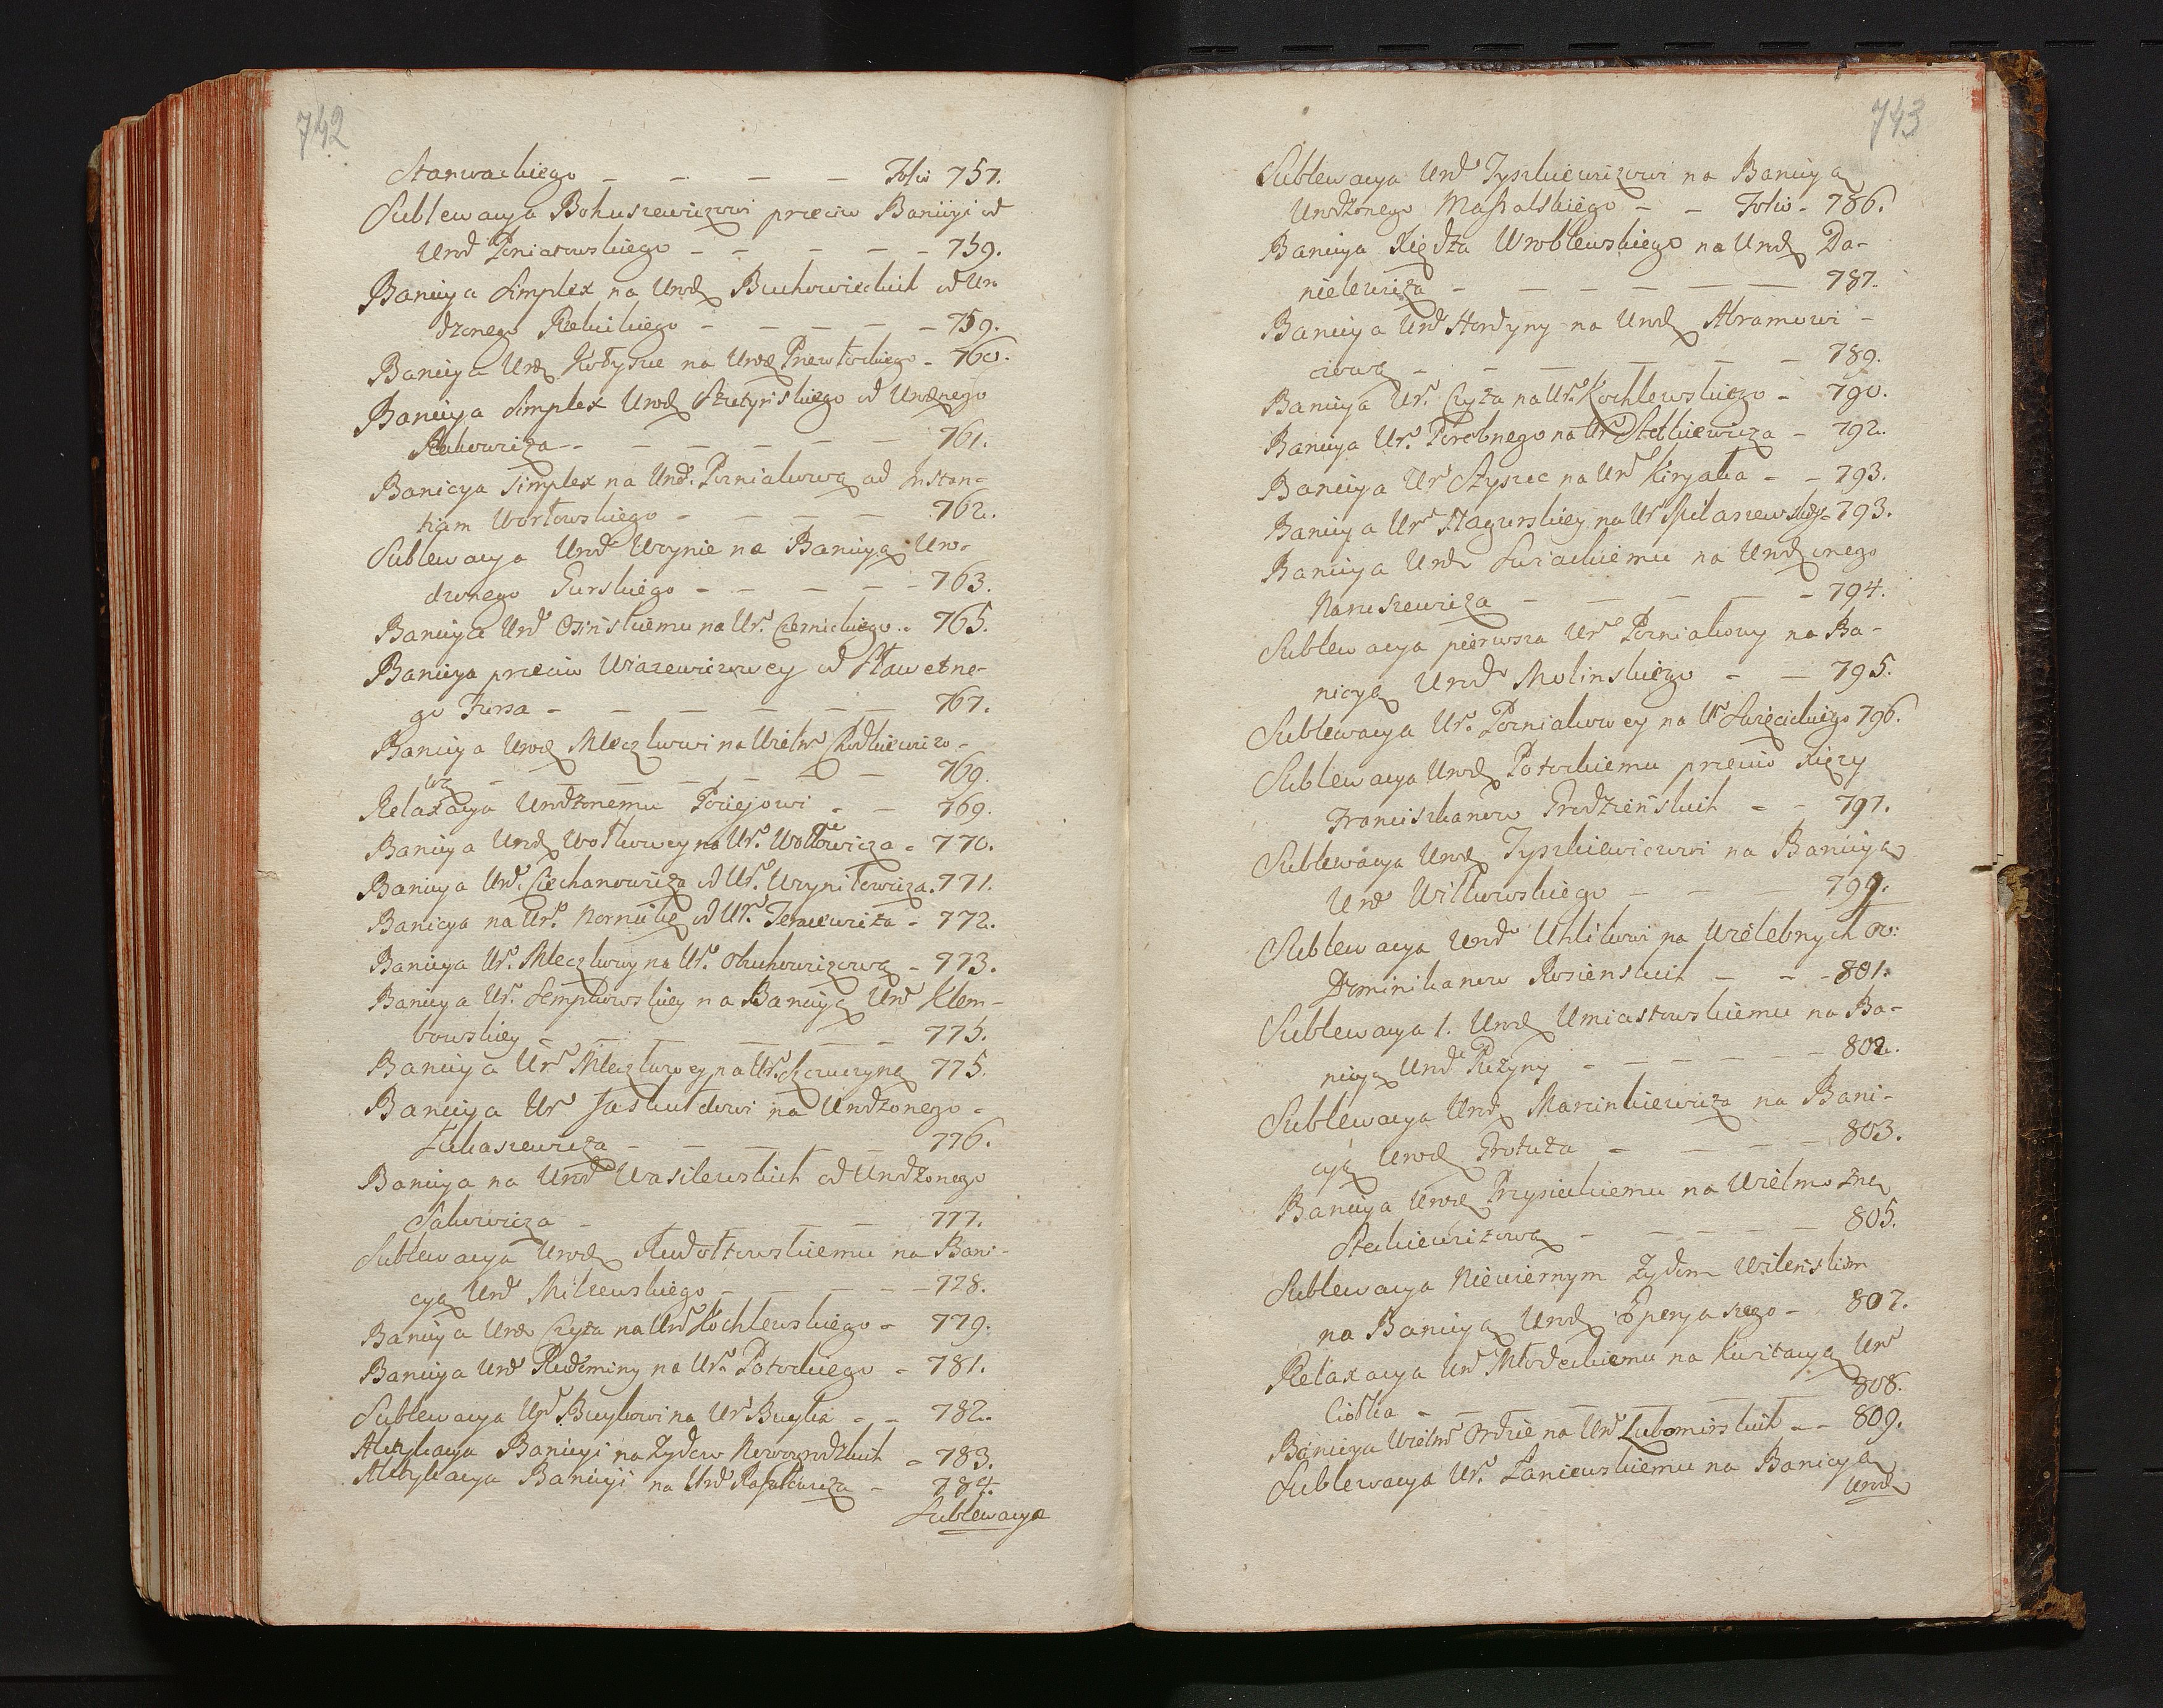 742
Starwackiego - - - - Folio 757.
Sublewacya Bohuszewiczowi przeciw Banicyi od
Urod Poniatowskiego - - - - - 759.
Banicya Simplex na Urodz Buchowieckich od Uro
dzonego Rielickiego - - - - - 759.
Banicya Urodz Kołyszce na Urodz Przewłockiego - 760.
Banicya Simplex Urodz Szetyńskiego od Urodznego
Rakowicza - - - - - - 761.
Banicya Simplex na Urod. Pozniakową ad Instan-
tiam Worłowskiego - - - - 762.
Sublewacya Urod Wrynie na Banicyą Uro-
dzonego Gurskiego - - - - - 763.
Banicya Urod Osińskiemu na Ur. Czernickiego - 765.
Banicya przeciw Wiazewiczowey od Sławetne-
go Fursa - - - - - - 767.
Banicya Urodz Mleczkowi na Wielm Chodkiewiczo-
wą - - - - - - 769.
Relaxacya Urodzonemu Pociejowi - - 769.
Banicya Urodz Wołkowey na Ur. Wołłowicza - 770.
Banicya Urod. Ciechanowicza od Ur. Wryniłowicza. 771.
Banicya na Ur. Kornickę od Ur. Jeniewicza - 772.
Banicya Ur. Mleczkowy na Ur. Obuchowiczową - 773.
Banicya Ur. Sempkowskiey na Banicyą Urod Klem-
bowskiey - - - - - 775.
Banicya Ur Mleczkowey na Ur. Szczuczynę 775.
Banicya Ur Jaskułdowi na Urodzonego -
Łukaszewicza - - - - - 776.
Banicya na Urod Wasilewskich od Urodzonego
Sakowicza - - - - - 777.
Sublewacya Urodz Rudołtowskiemu na Bani-
cyą Urod Milzewskiego - - - - - 778.
Banicya Urod Czyża na Ur Kochlewskiego - 779.
Banicya Urod Rudominy na Ur. Potockiego - 781.
Sublewacya Ur Buylowi na Ur Buyla - - 782.
Aktykacya Banicyi na Zydow Nowogrodzkich - 783.
Aktykacya Banicyi na Urod Rafałowicza - 784.
Sublewacya
743
Sublewacya Urod Tyszkiewiczowi na Banicyą
Urodzonego Massalskiego - - Folio - 786.
Banicya Xiędza Wroblewskiego na Urodz Da-
nielewicza - - - - - - 787.
Banicya Urod Hordyny na Urodz Abramowi-
czową - - - - - 789.
Banicya Ur. Czyża na Ur. Kochlewskiego - 790.
Banicya Ur. Porebnego na Ur Stetkiewicza - 792.
Banicya Ur Szyszce na Ur Kirjaka - - 793.
Banicya Ur Hagurskiey na Ur Spilarzewską - 793.
Banicya Urodz Suzackiemu na Urodzonego
Naruszewicza - - - - - 794.
Sublewacya pierwsza Ur Pozniakowy na Ba-
nicyą Urod Molinskiego - - 795.
Sublewacya Ur. Pozniakowey na Ur Swięcickiego 796.
Sublewacya Urodz Potockiemu przeciw Xięzy
Franciszkanow Grodzieńskich - - 797.
Sublewacya Urodz Tyszkiewiczowi na Banicyą
Urod Witkowskiego - - - 799.
Sublewacya Urod Uhlikowi na Wielebnych xx:
Dominikanow Rosienskich - - - 801.
Sublewacya 1. Urodz Umiastowskiemu na Ba-
nicyą Urod Puzyny - - - - - - 802.
Sublewacya Urodz Marcinkiewicza na Bani-
cyą Urodz Grotuza - - - - 803.
Banicya Urodz Przysieckiemu na Wielmożną
Steckiewiczową - - - - - 805.
Sublewacya Niewiernym Zydom Wileńskim
na Banicyą Urodz Eperyaszego - 807.
Relaxacya Ur Młodeckiemu na Kwitacyą Ur
Ciołka - - - - - 808.
Banicya Wielm Ordzie na Urod Lubomirskich - - 809.
Sublewacya Ur. Zaniewskiemu na Banicyą
Urodz